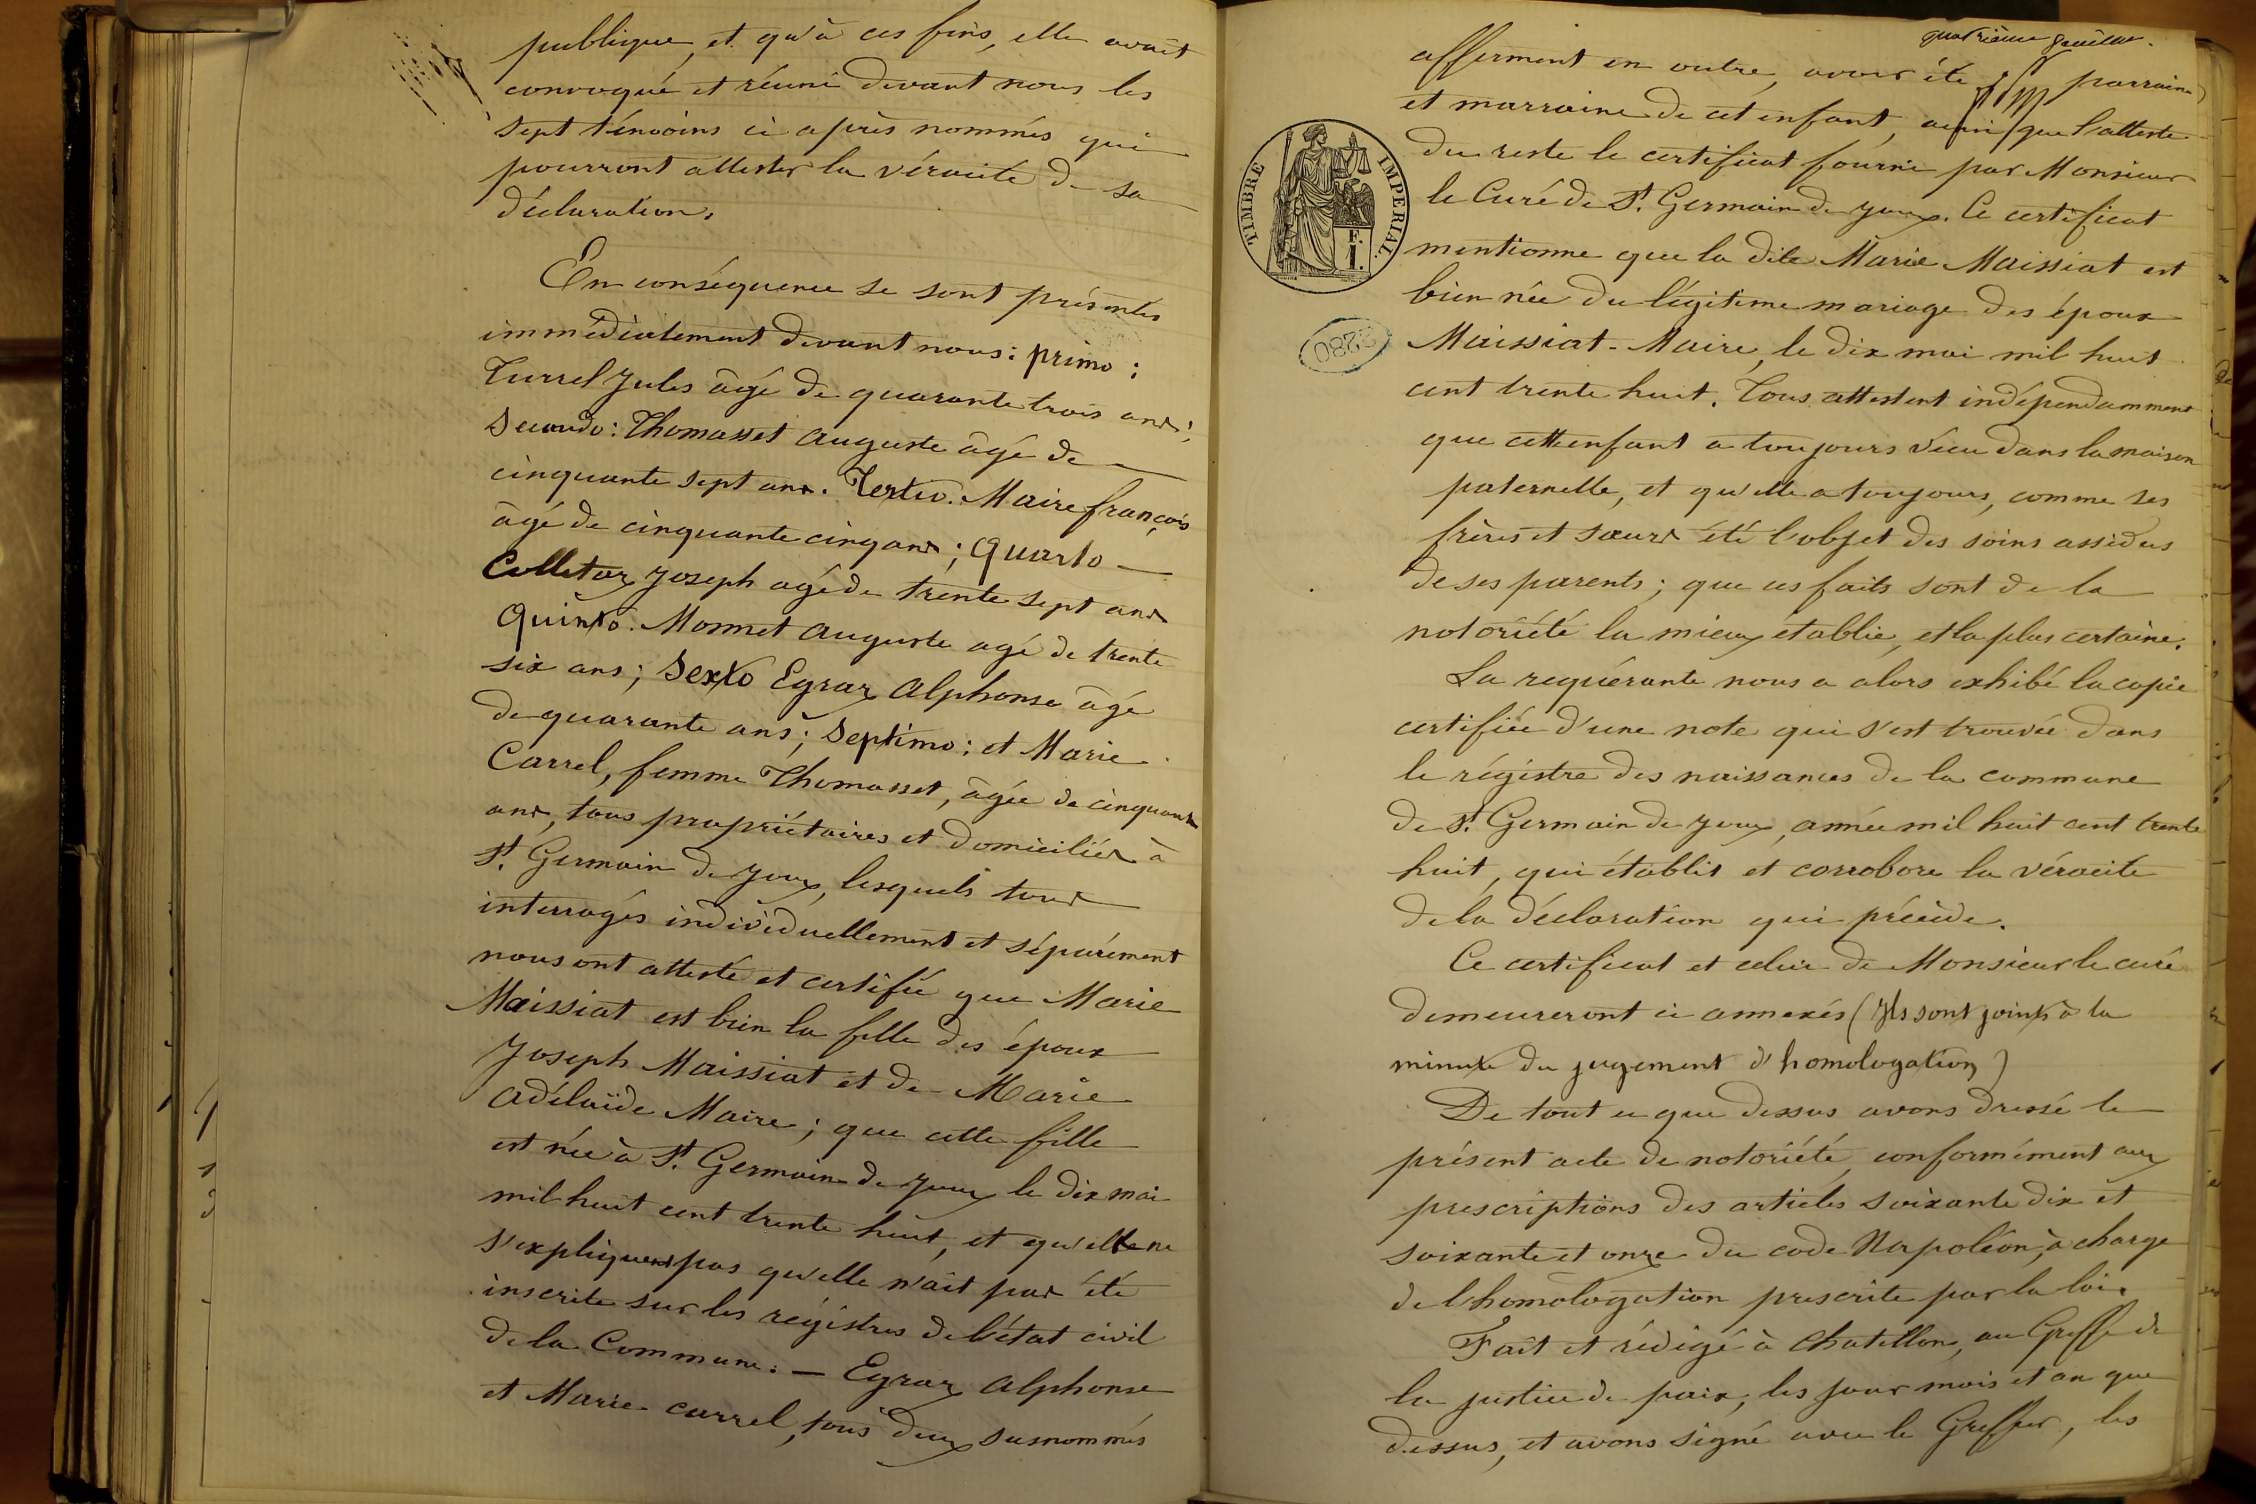 publique, et qu'à ces fins, elle avait
convoqué et réuni devant nous les
sept témoins ci après nommés qui
pourront attester la véracité de sa
déclaration.
En conséquence se sont présentés
immédiatement devant nous : primo :
Turrel Jules âgé de quarante trois ans ;
Secundo : Thomasset Auguste âgé de
cinquante sept ans. Tertio. Maire françois
âgé de cinquante cinq ans ; Quarto
Colletaz Joseph agé de trente sept ans
Quinto. Monnet Auguste agé de trente
six ans ; Sexto Egraz Alphonse âgé
de quarante ans ; Septimo : et Marie
Carrel, femme Thomasset, âgée de cinquante
ans, tous propriétaires et domiciliés à
St. Germain de Joux, lesquels tous
interrogés individuellement et séparément
nous ont attesté et certifié que Marie
Maissiat est bien la fille des époux
Joseph Maissiat et de Marie
Adélaïde Maire ; que cette fille
est née à St. Germain de Joux le dix mai
mil huit cent trente huit, et qu'ils ne
s'expliquent pas qu'elle n'ait pas été
inscrite sur les régistres de l'état civil
de la Commune. — Egraz Alphonse
et Marie Carrel, tous deux susnommés
quatrième feuillet.
afferment en outre, avoir été parrain
et marraine de cet enfant, ainsi que l'atteste
du reste le certificat fourni par Monsieur
le Curé de St. Germain de Joux. Ce certificat
TIMBRE IMPERIAL.
E. I.
mentionne que la dite Marie Maissiat est
bien née du légitime mariage des époux
3280
Maissiat-Maire, le dix mai mil huit
cent trente huit. Tous attestent indépendamment
que cette enfant a toujours vécu dans la maison
paternelle, et qu'elle a toujours, comme ses
frères et sœurs été l'objet des soins assidus
de ses parents ; que ces faits sont de la
notoriété la mieux établie, et la plus certaine.
La requérante nous a alors exhibé la copie
certifiée d'une note qui s'est trouvée dans
le régistre des naissances de la commune
de St. Germain de Joux, année mil huit cent trente
huit, qui établit et corrobore la véracité
de la déclaration qui précède.
Ce certificat et celui de Monsieur le curé
demeureront ci annexés (Ils sont joints à la
minute du jugement d'homologation)
De tout ce que dessus avons dressé le
présent acte de notoriété, conformément aux
prescriptions des articles soixante dix et
soixante et onze du code Napoléon, à charge
de l'homologation prescrite par la loi.
Fait et rédigé à Chatillon, au Greffe de
la justice de paix, les jour mois et an que
dessus, et avons signé avec le Greffier, les